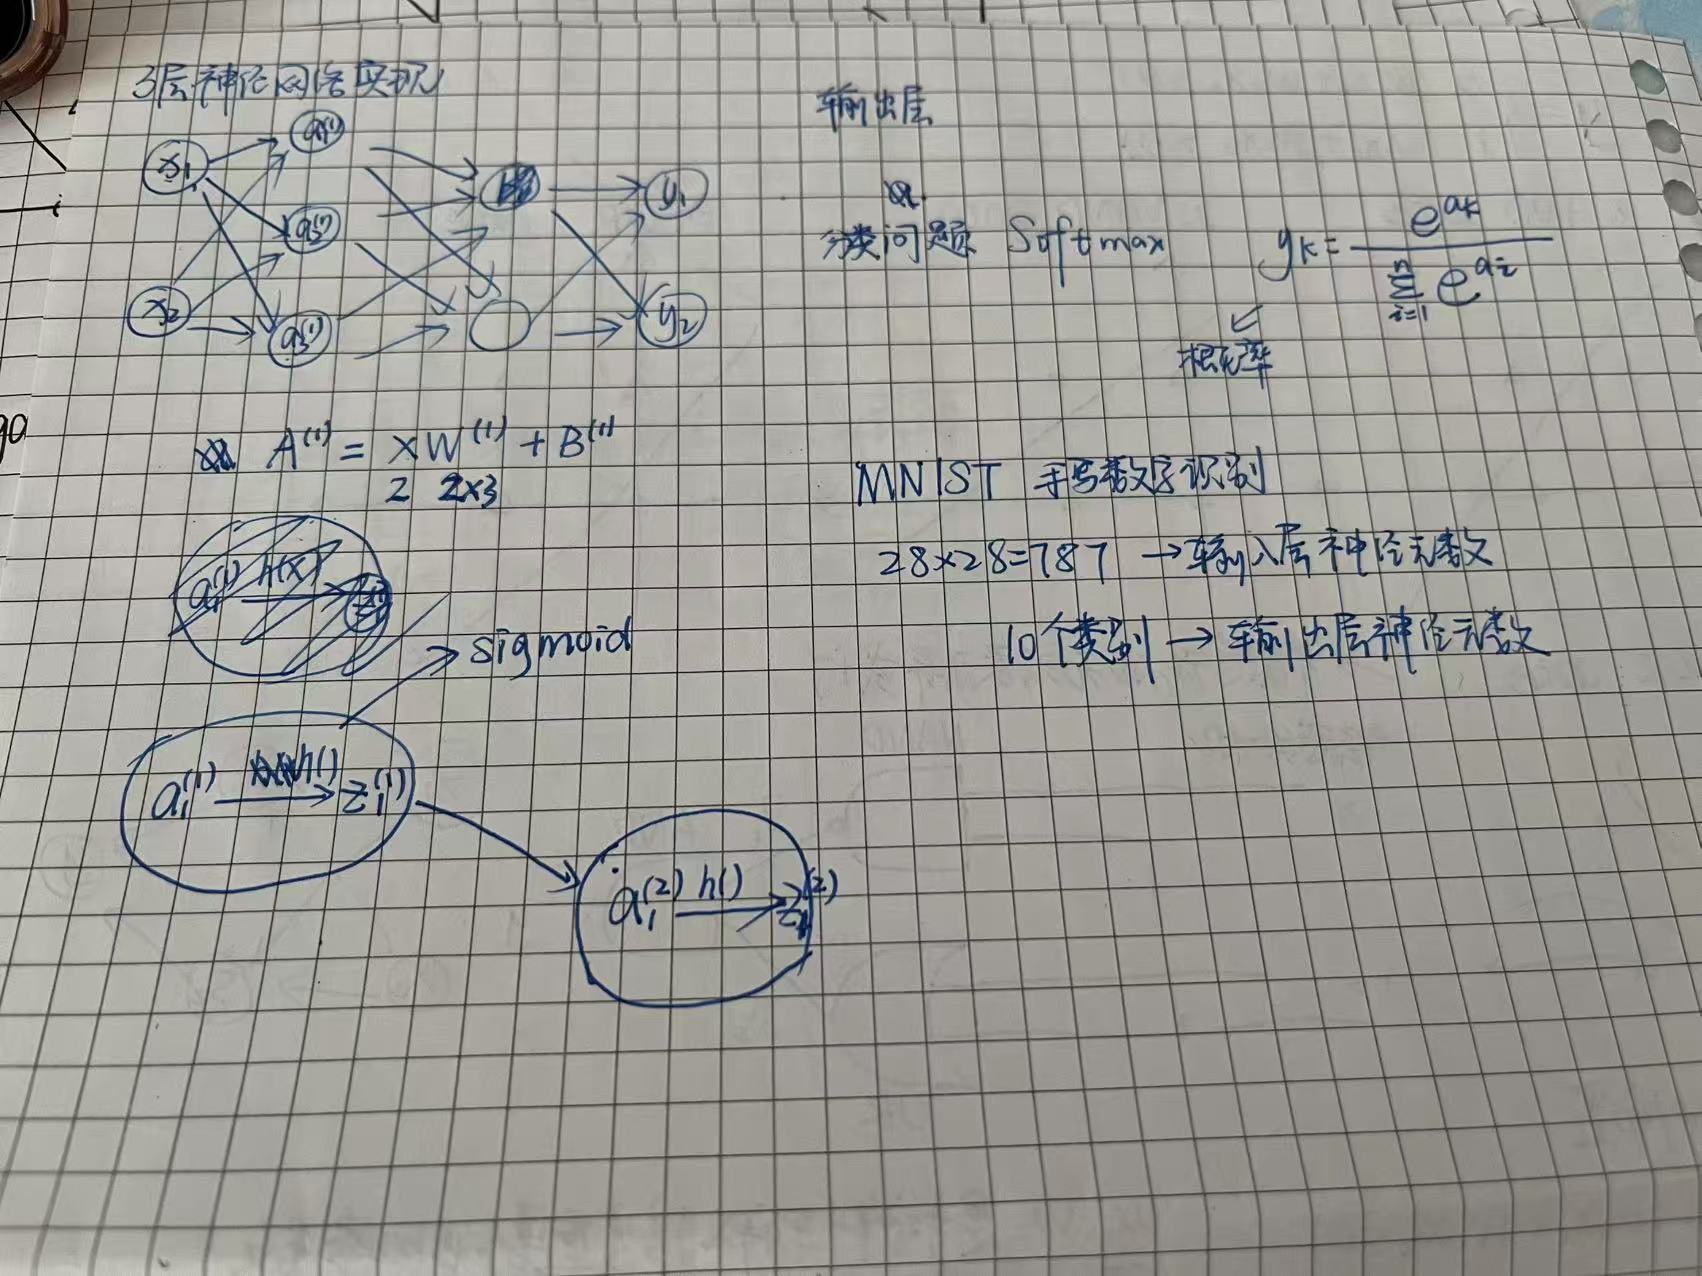 3层神经网络实现
x₁ a₁⁽¹⁾ y₁
a₂⁽¹⁾
x₂ a₃⁽¹⁾ y₂
A⁽¹⁾ = XW⁽¹⁾ + B⁽¹⁾
2 2×3
a₁⁽¹⁾ h(x)
sigmoid
a₁⁽¹⁾ h() z₁⁽¹⁾
a₁⁽²⁾ h() z₁⁽²⁾
输出层
分类问题 Softmax yₖ = e^(aₖ) / Σ_(i=1)^n e^(aᵢ)
概率
MNIST 手写数字识别
28×28=787 → 输入层神经元数
10个类别 → 输出层神经元数
90